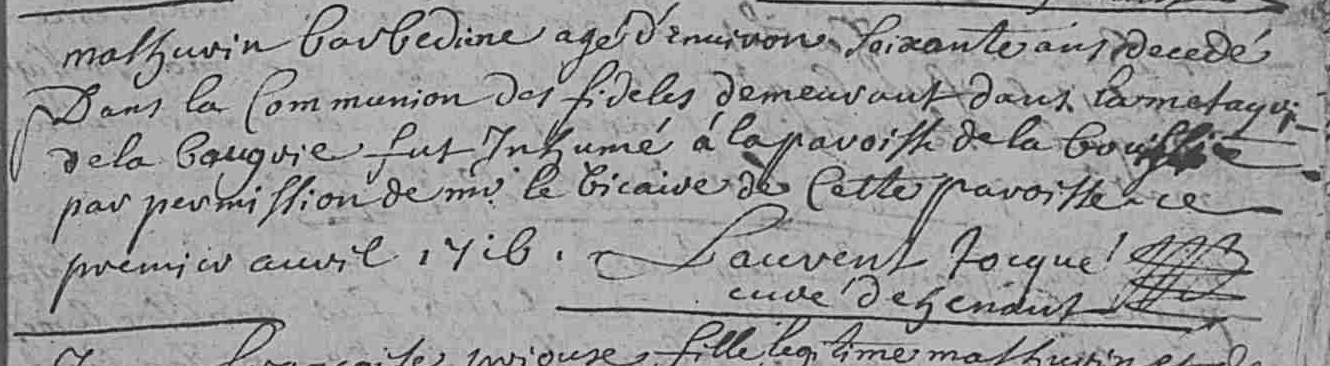 mathurin barbedine agé d'enuiron soixante ans decedé
Dans la Communion des fideles demeurant dans la metayri
de la bauqrie fut Inhumé á la paroisse de la
par permission de mr. le bicaire de Cette paroisse ce
premier auril 1716. Laurent Jocqué
curé de henant
françoise prioure fille legitime mathurin et de